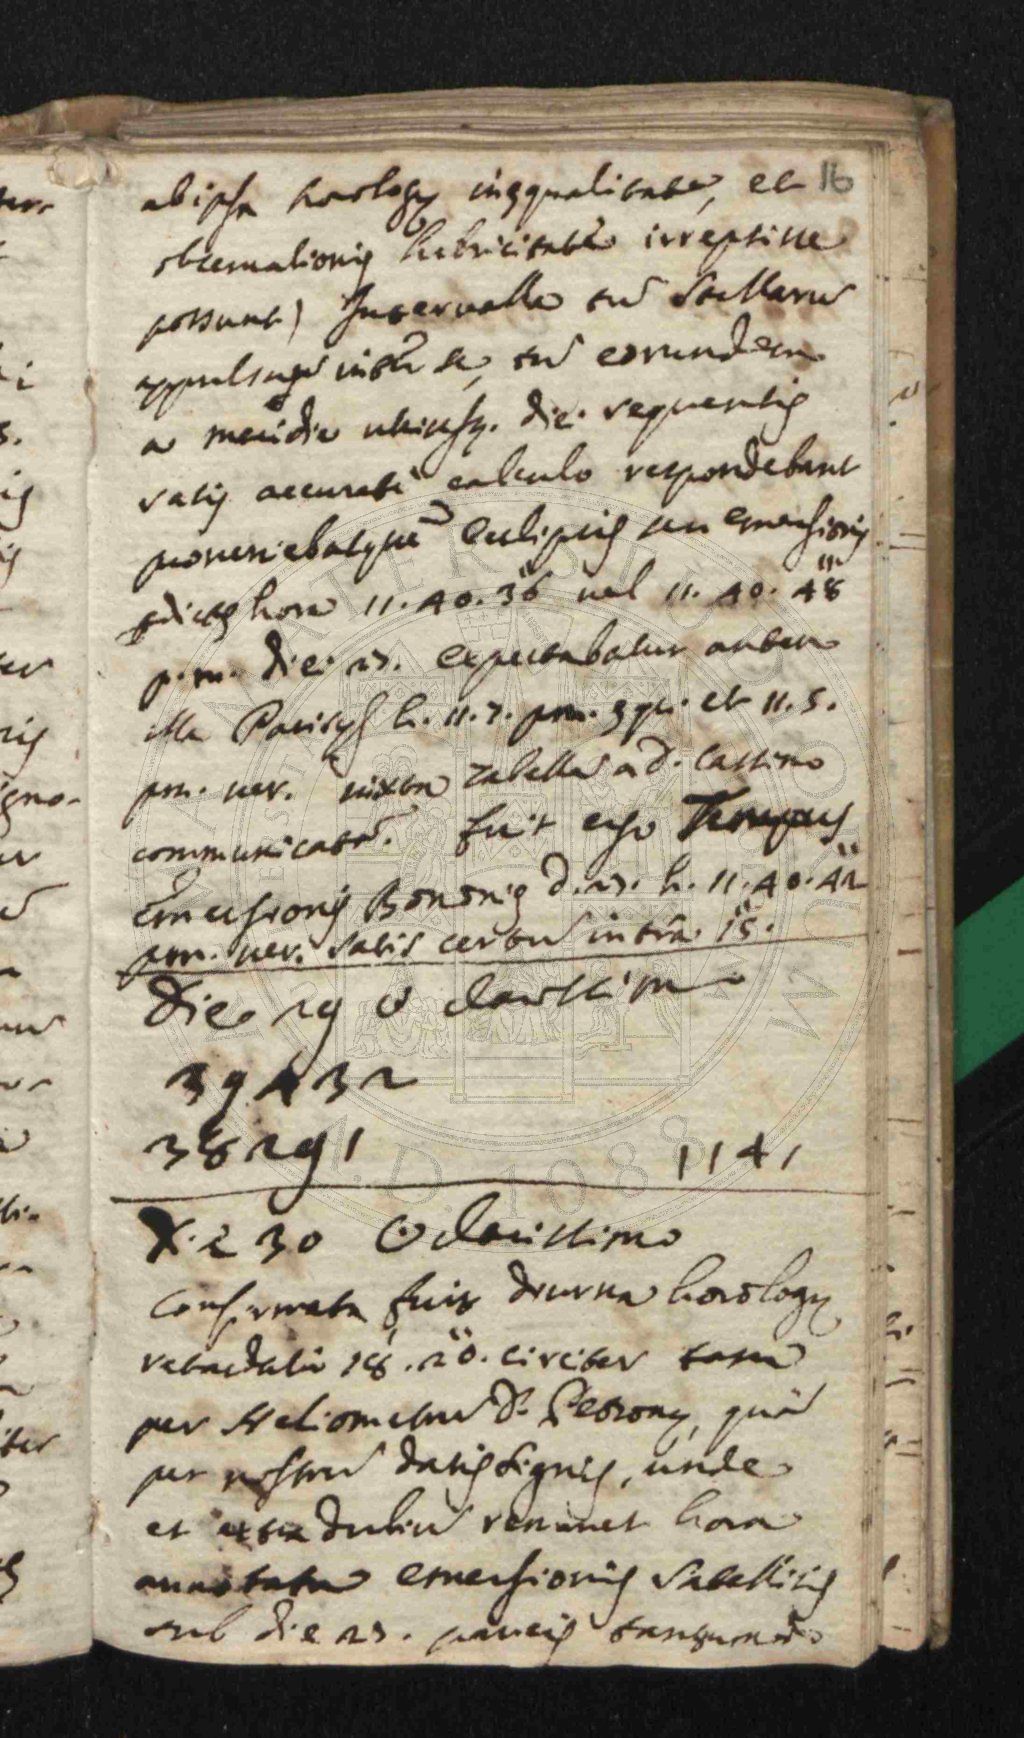 ab ipsa horologij inęqualitate, et 16
obseruationis lubricitate irrepsisse
possunt) Interualla tū Stellarū
appulsuū inter se, tū eorundem
a meridie utriusq. diei sequentis
satis accurate calculo respondebant
proueniebatque Eclipsis seu emersionis
hora 11. 40. 36 uel 11. 40. 48
p. m. die. 23. expectabatur autem
illa Parisijs h. 11. 7. pm. et 11. 5.
pm. uer. iuxta Tabellā a d. Cassino
communicatā. fuit ergo Tempus
Emersionis Bononię d. 23. h. 11. 40. 42
pm. uer. satis certū intra 15.
Die 29 ☉ clarissimo
39432
38291 1141
X. 2 30 ☉ clarissimo
Confirmata fuit diurna horologij
retardatio 18. 20. circiter tam
per Heliometrū d. Petronij, quā
per nostrū datis signis, unde
et extra dubiū remanet hora
annotata emersionis Satellitis
sub die 23. paucis tantummodo